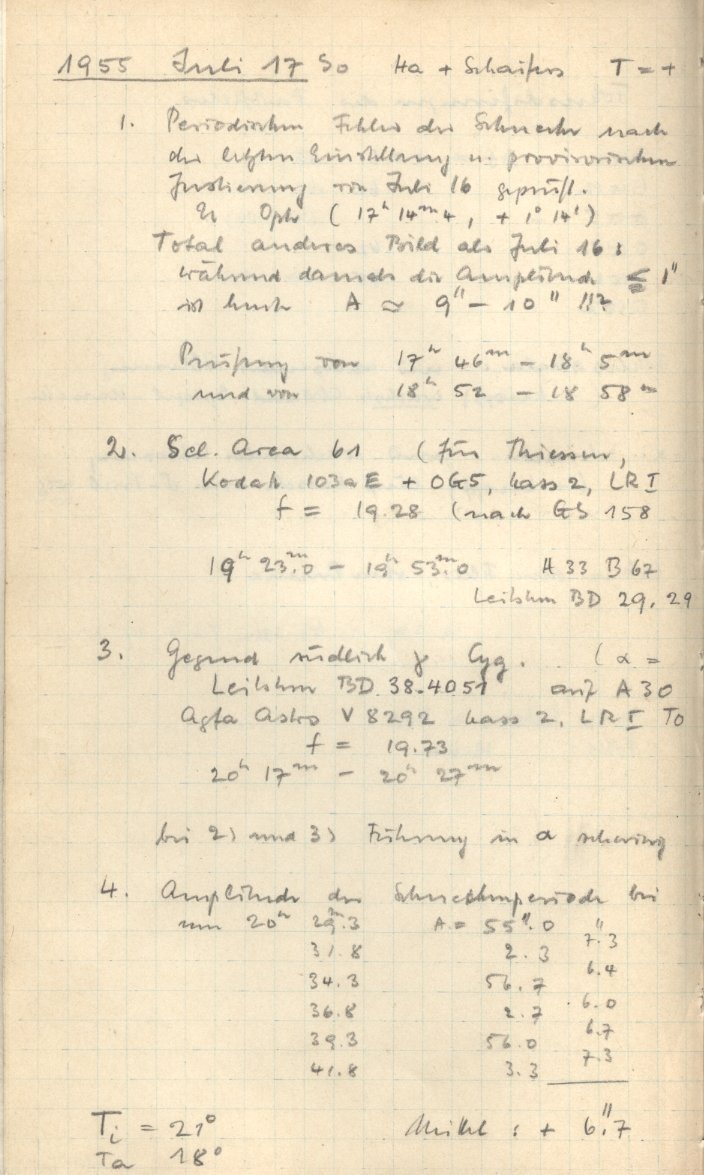 1955 Juli 17 So Ha + Schaifers T = +
1. Periodischen Fehler der Schnecke nach
der letzten Einstellung u. provisorischen
Justierung von Juli 16 geprüft.
Oph (17h 14m4, + 1° 14')
Total anderes Bild als Juli 16:
während damals die Amplitude ≦ 1"
ist heute A ≈ 9" – 10" !!?
Prüfung von 17h 46m – 18h 5m
und von 18h 52 – 18 58m
2. Sel. Area 61 (für Thiessen,
Kodak 103aE + OG5, kass 2, LR I
f = 19.28 (nach GS 158
19h 23m.0 – 19h 53m.0 A 33 B 67
Leitstern BD 29.29
3. Gegend südlich γ Cyg. (α =
Leitstern BD 38.4051 auf A 30
Agfa Astro V 8292 kass 2, LR I To
f = 19.73
20h 17m – 20h 27m
bei 2) und 3) Führung in α schwierig
4. Amplitude der Schneckenperiode bei
um 20h 29m.3 A = 55".0
7".3
31.8 2.3
6.4
34.3 56.7
6.0
36.8 2.7
6.7
39.3 56.0
7.3
41.8 3.3
Ti = 21° Mittel : + 6".7
Ta 18°